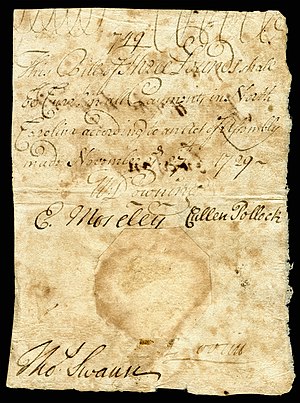 749
This Bill of Three Pounds shall
be Current in all Payments in North
Carolina according to an Act of Assembly
made November ye 27th 1729
W Downing
E. Moseley Cullen Pollock
Tho.s Swann